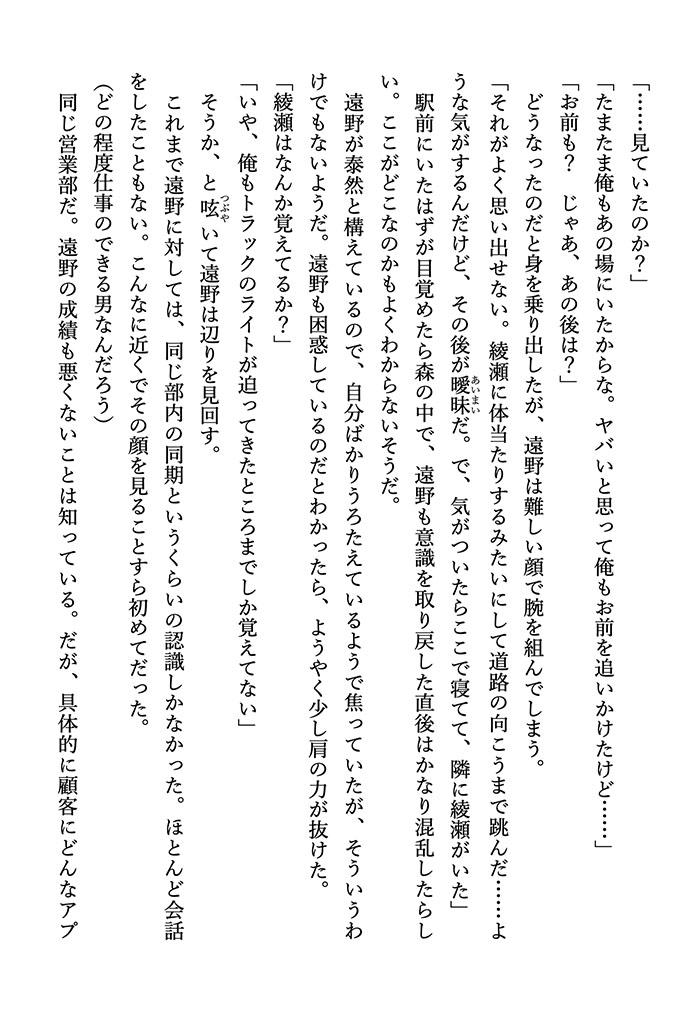 「……見ていたのか？」
「たまたま俺もあの場にいたからな。ヤバいと思って俺もお前を追いかけたけど……」
「お前も？　じゃあ、あの後は？」
　どうなったのだと身を乗り出したが、遠野は難しい顔で腕を組んでしまう。
「それがよく思い出せない。綾瀬に体当たりするみたいにして道路の向こうまで跳んだ……よ
うな気がするんだけど、その後が曖昧だ。で、気がついたらここで寝てて、隣に綾瀬がいた」
　駅前にいたはずが目覚めたら森の中で、遠野も意識を取り戻した直後はかなり混乱したらし
い。ここがどこなのかもよくわからないそうだ。
　遠野が泰然と構えているので、自分ばかりうろたえているようで焦っていたが、そういうわ
けでもないようだ。遠野も困惑しているのだとわかったら、ようやく少し肩の力が抜けた。
「綾瀬はなんか覚えてるか？」
「いや、俺もトラックのライトが迫ってきたところまでしか覚えてない」
　そうか、と呟いて遠野は辺りを見回す。
　これまで遠野に対しては、同じ部内の同期というくらいの認識しかなかった。ほとんど会話
をしたこともない。こんなに近くでその顔を見ることすら初めてだった。
（どの程度仕事のできる男なんだろう）
　同じ営業部だ。遠野の成績も悪くないことは知っている。だが、具体的に顧客にどんなアプ
あいまい
つぶや